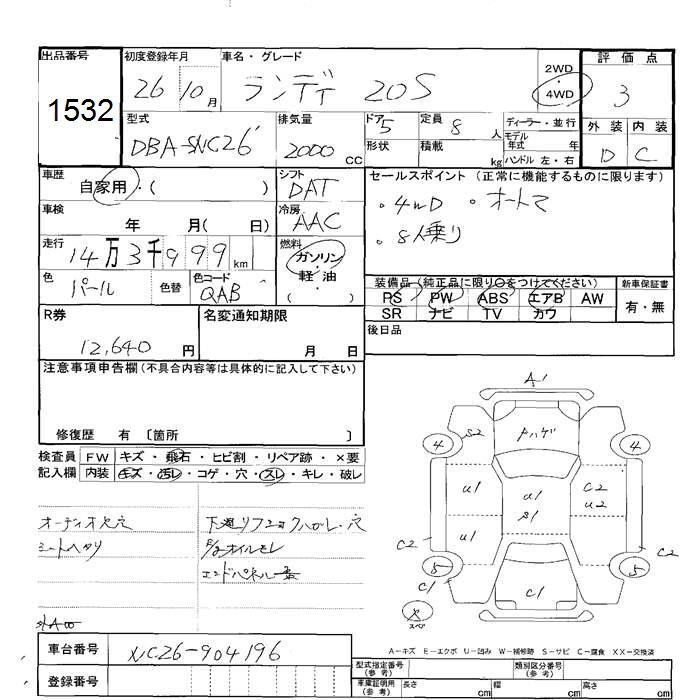 出品番号 初度登録年月 車名・グレード 評価点
1532 26 10月 ランディ 20S 2WD・4WD 3
型式 排気量 ドア 5 定員 8人 ディーラー・並行 外装 内装
DBA-SNC26 2000cc 形状 積載 kg モデル年式 年 D C
ハンドル 左・右
車歴 自家用・( ) シフト DAT セールスポイント (正常に機能するものに限ります)
車検 年 月( 日) 冷房 AAC ・4WD ・オートマ
走行 14万3千999km 燃料 ガソリン 軽・油 ( ・ ) ・8人乗り
色 パール 色替 色コード QAB
装備品 (純正品に限り○をつけてください) 新車保証書
PS PW ABS エアB AW 有・無
SR ナビ TV カワ
R券 12,640円 名変通知期限 月 日 後日品
注意事項申告欄(不具合内容等は具体的に記入して下さい)
修復歴 有 〔箇所 〕
検査員 FW キズ・飛石・ヒビ割・リペア跡・×要
記入欄 内装 キズ・汚レ・コゲ・穴・スレ・キレ・破レ
オーディオ欠穴
下廻りフユコクハガレ・穴
オイルモレ
エンドパネル
A1
4 S2 ハゲ 4
U1 U1 C2
S1 U2
C2 U1 C2
5 5
C1 C1
スペア
A-キズ E-エクボ U-凹み W-補修跡 S-サビ C-腐食 XX-交換済
車台番号 NC26-904196 型式指定番号(参考) 類別区分番号(参考)
登録番号 車庫証明用(参考) 長さ cm 幅 cm 高さ cm